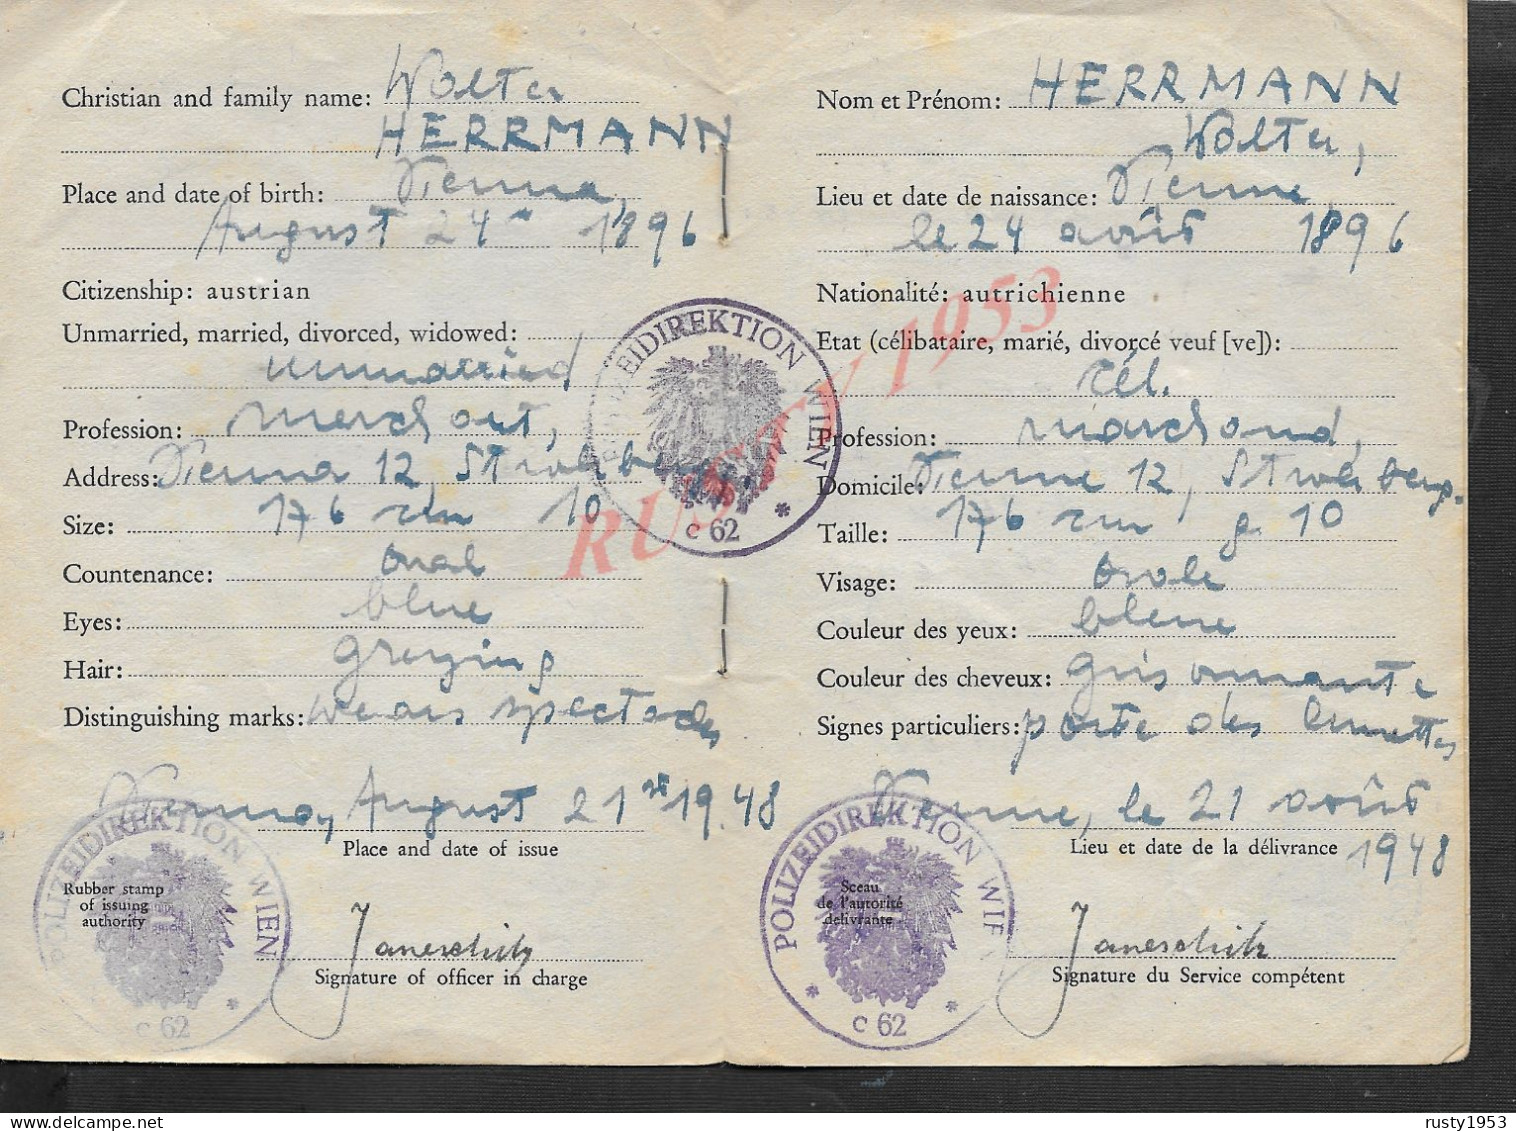 Christian and family name: Walter
HERRMANN
Place and date of birth: Vienna,
August 24th 1896
Citizenship: austrian
Unmarried, married, divorced, widowed:
unmarried
Profession: merchant,
Address: Vienna 12,
Size: 176 cm 10
Countenance: oval
Eyes: blue
Hair: greying
Distinguishing marks: wears spectacles
Vienna, August 21st 1948
Place and date of issue
Rubber stamp
of issuing
authority
Janeschitz
Signature of officer in charge
POLIZEIDIREKTION WIEN
* C 62
POLIZEIDIREKTION WIEN
* C 62
RUSTY 1953
Nom et Prénom: HERRMANN
Walter,
Lieu et date de naissance: Vienne,
le 24 août 1896
Nationalité: autrichienne
Etat (célibataire, marié, divorcé veuf [ve]):
cél.
Profession: marchand,
Domicile: Vienne 12,
Taille: 176 cm g. 10
Visage: ovale
Couleur des yeux: bleue
Couleur des cheveux: gris
Signes particuliers: porte des lunettes
Vienne, le 21 août
1948
Lieu et date de la délivrance
Sceau
de l'autorité
délivrante
Janeschitz
Signature du Service compétent
POLIZEIDIREKTION WIEN
* C 62 *
rusty1953